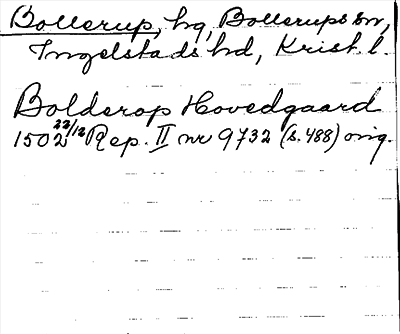 Bollerup, hg, Bollerups sn,
Ingelstads hd, Krist. l.
Bolderop Hovedgaard
1502 22/12 Rep. II nr 9732 (s. 488) orig.